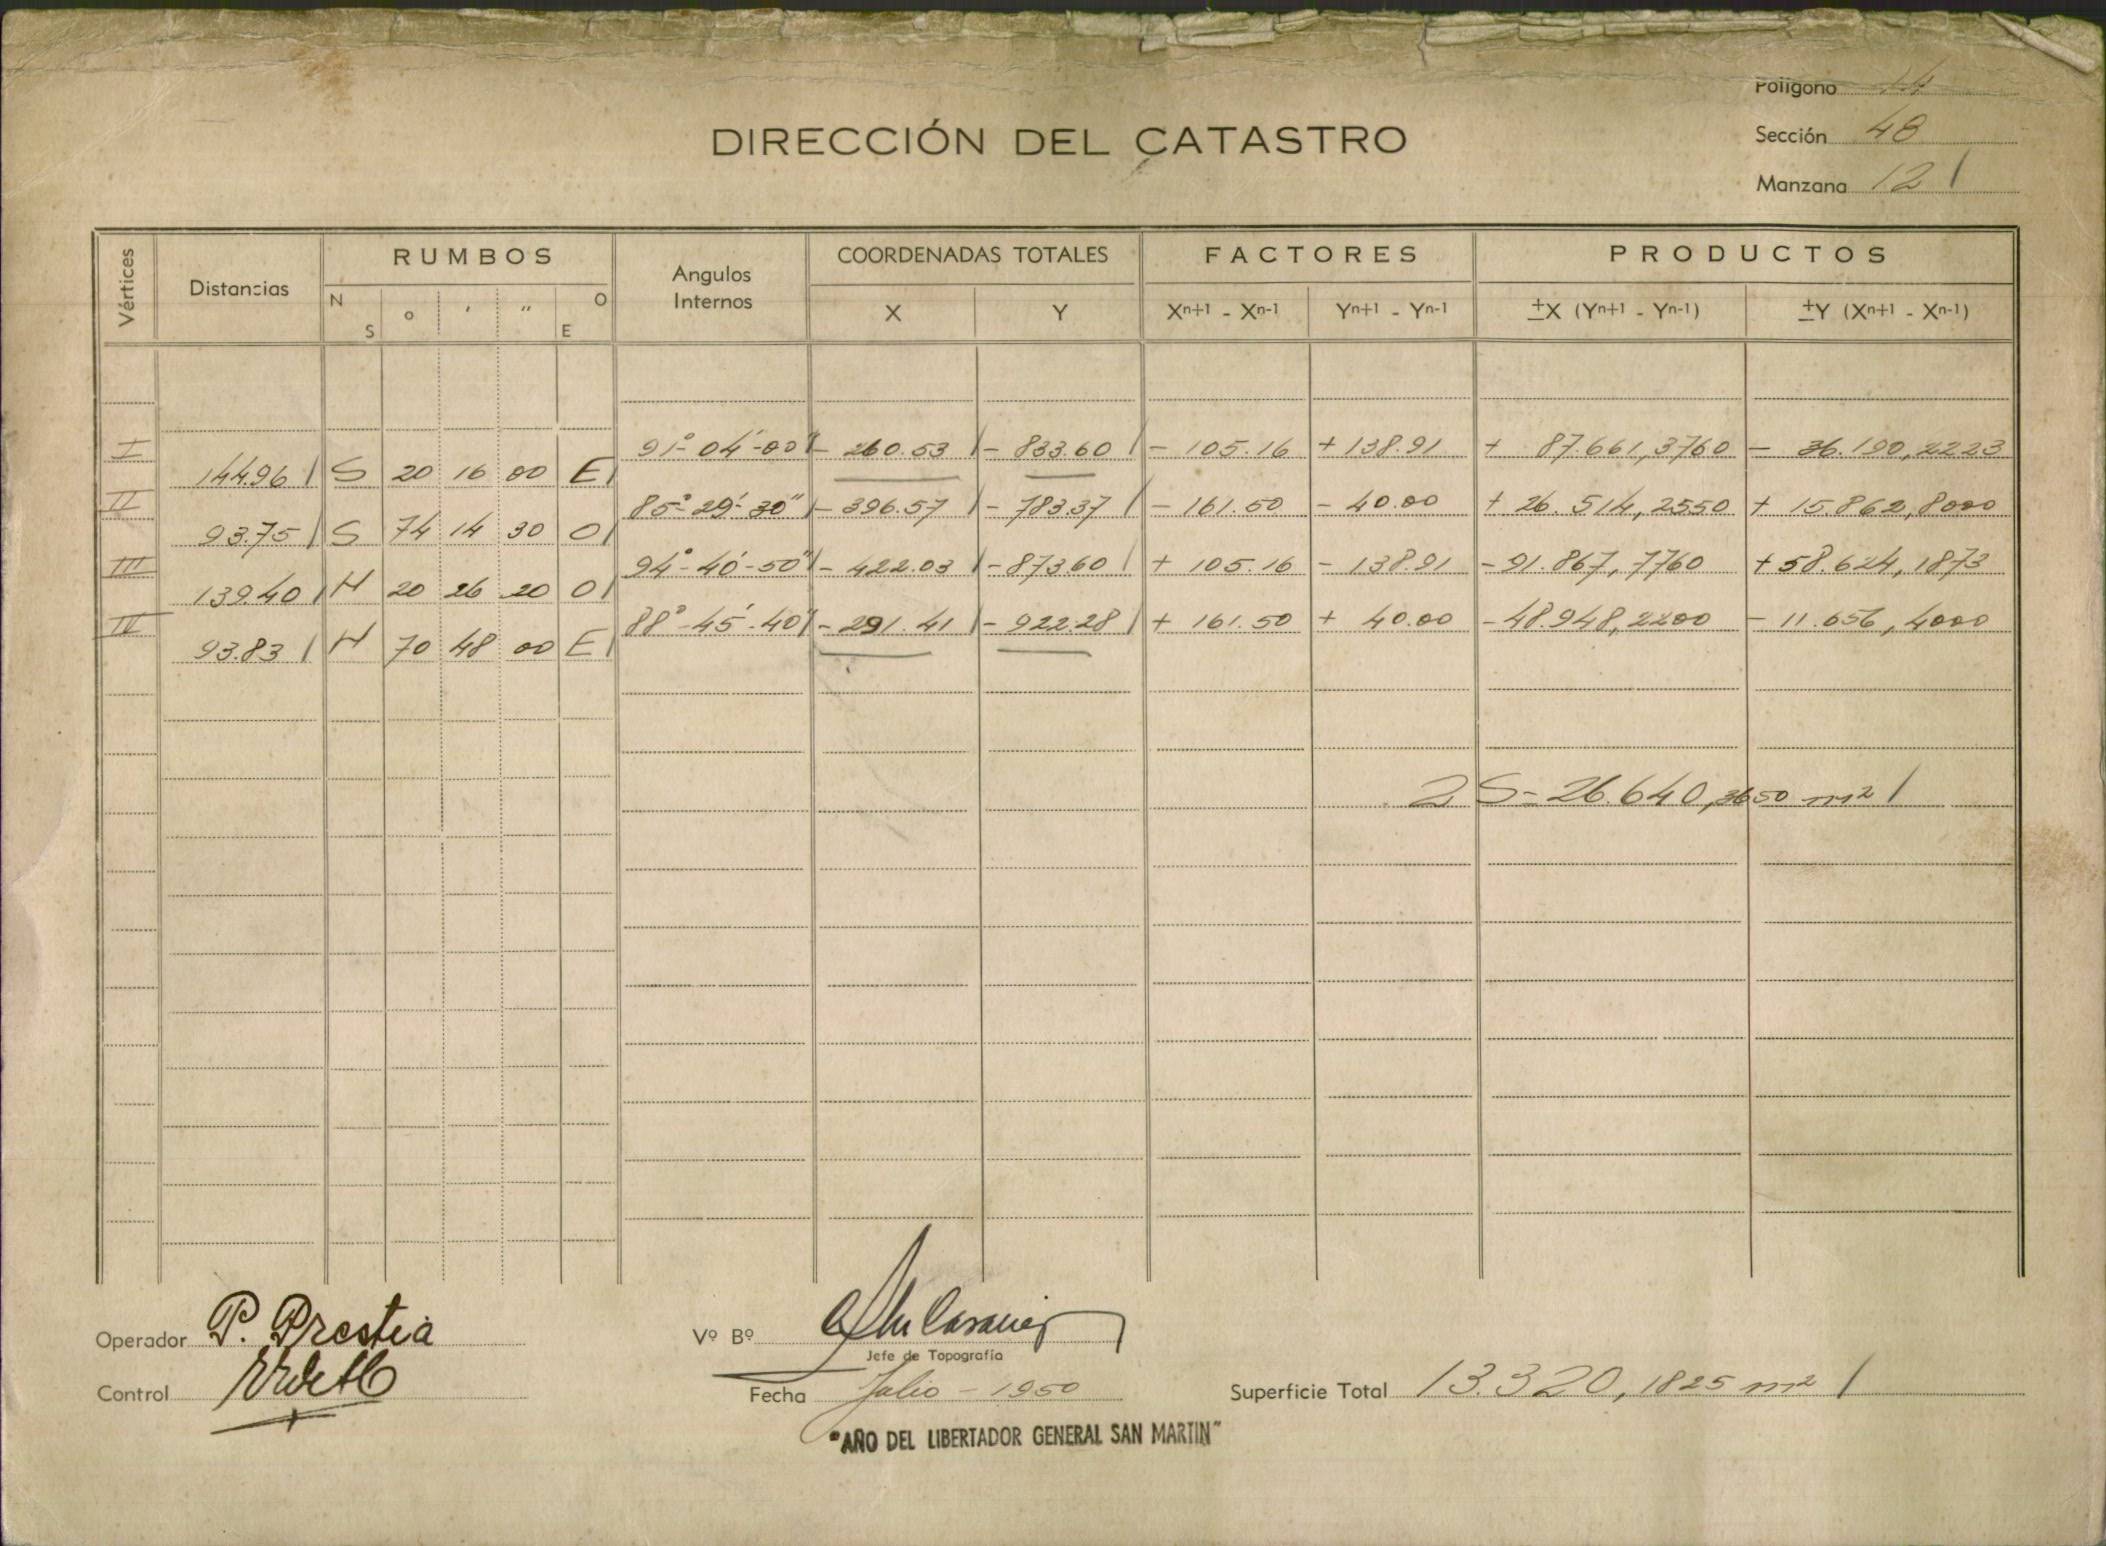 Polígono 14
Sección 48
Manzana 12 /
DIRECCIÓN DEL CATASTRO
Vértices Distancias RUMBOS Angulos Internos COORDENADAS TOTALES FACTORES PRODUCTOS
N S ° ' " O E X Y Xn+1 - Xn-1 Yn+1 - Yn-1 ±X (Yn+1 - Yn-1) ±Y (Xn+1 - Xn-1)
I 91°-04'-00" / - 260.53 / - 833.60 / - 105.16 + 138.91 + 87.661,3760 - 36.190,2223
144.96 / S 20 16 00 E /
II 85°-29'-30" / - 396.57 / - 783.37 / - 161.50 - 40.00 + 26.514,2550 + 15.862,8000
93.75 / S 74 14 30 O /
III 94°-40'-50" / - 422.03 / - 873.60 / + 105.16 - 138.91 - 91.867,7760 + 58.624,1873
139.40 / N 20 26 20 O /
IV 88°-45'-40" / - 291.41 / - 922.28 / + 161.50 + 40.00 - 48.948,2200 - 11.656,4000
93.83 / N 70 48 00 E /
2 S = 26.640,3650 m² /
Operador P. Prestia
Vº Bº
Jefe de Topografía
Control
Fecha Julio - 1950
Superficie Total 13.320,1825 m² /
"AÑO DEL LIBERTADOR GENERAL SAN MARTIN"